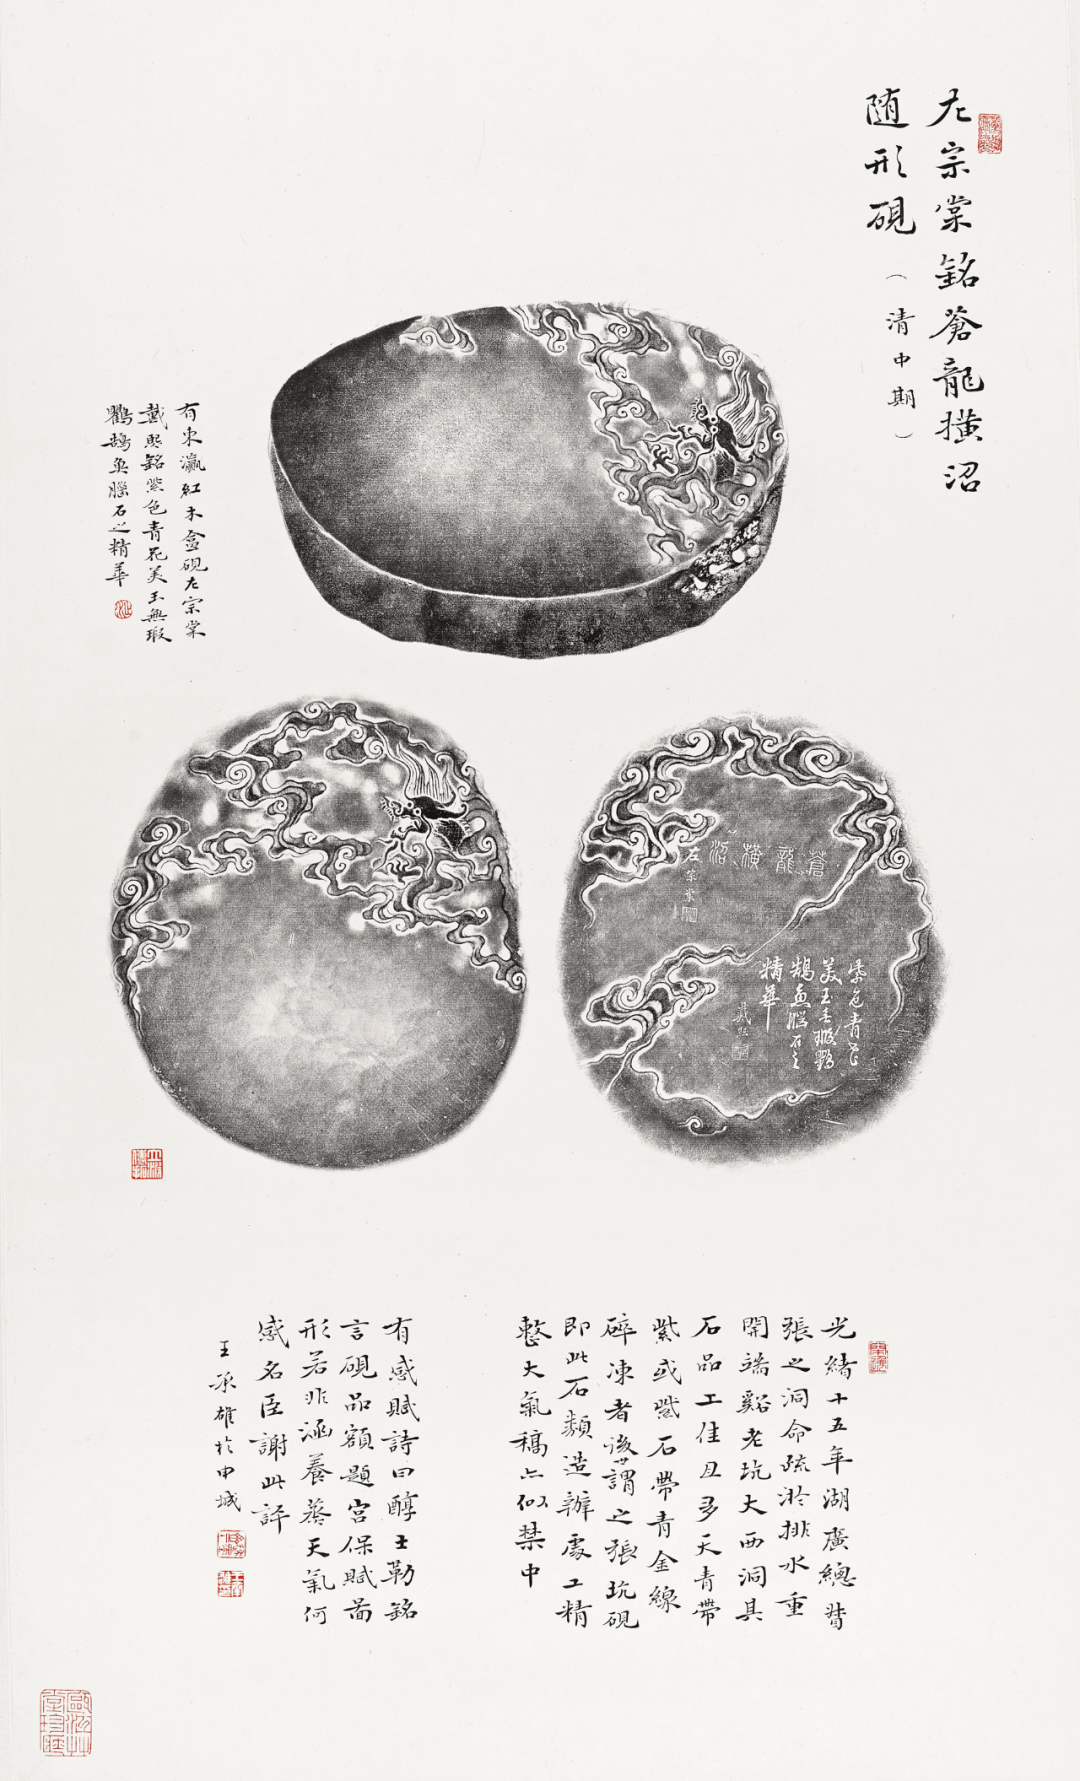 左宗棠銘蒼龍橫沼
随形硯
（清中期）
有東瀛紅木盒硯左宗棠
戴熙銘紫色青花美玉無瑕
鸜鵒魚腦石之精華
蒼龍橫沼
左宗棠
紫色青花
美玉無瑕鸜
鵒魚腦石之
精華
戴熙
光緒十五年湖廣總督
張之洞命疏淤排水重
開端谿老坑大西洞其
石品工佳且多天青帶
紫或蹙石帶青金線
碎凍者後世謂之張坑硯
即此石類造辦處工精
整大氣稿亦似禁中
有感賦詩曰醇士勒銘
言硯品額題宮保賦留
形若非涵養蒸天氣何
感名臣謝此評
王承雄於申城